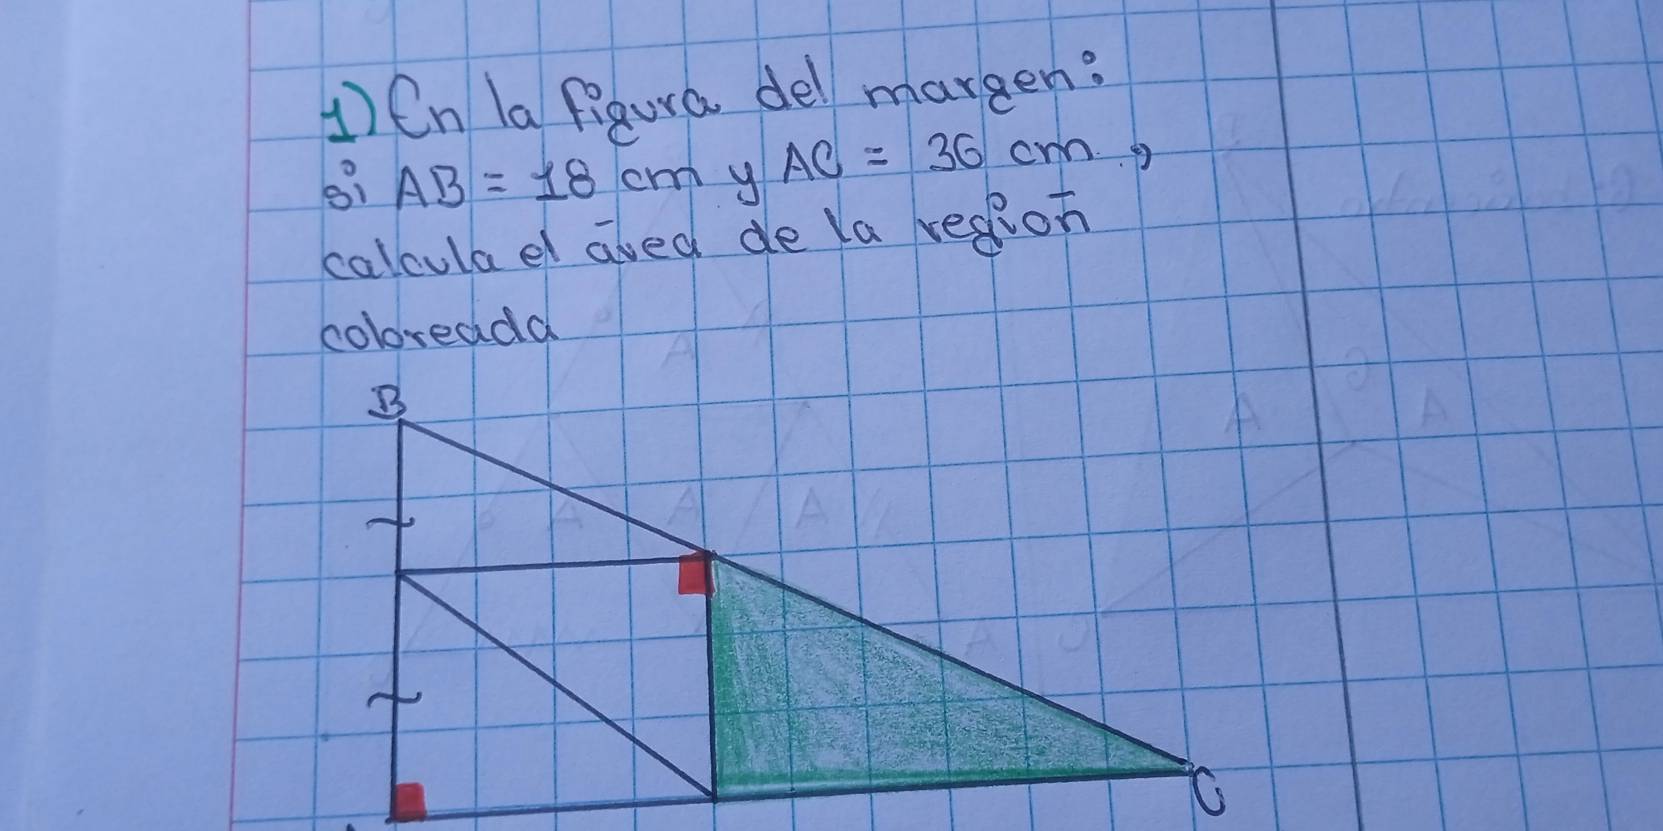 1) En la figura del margen:
si AB = 18 cm y AC = 36 cm.,
calcula el área de la región
coloreada
B
C